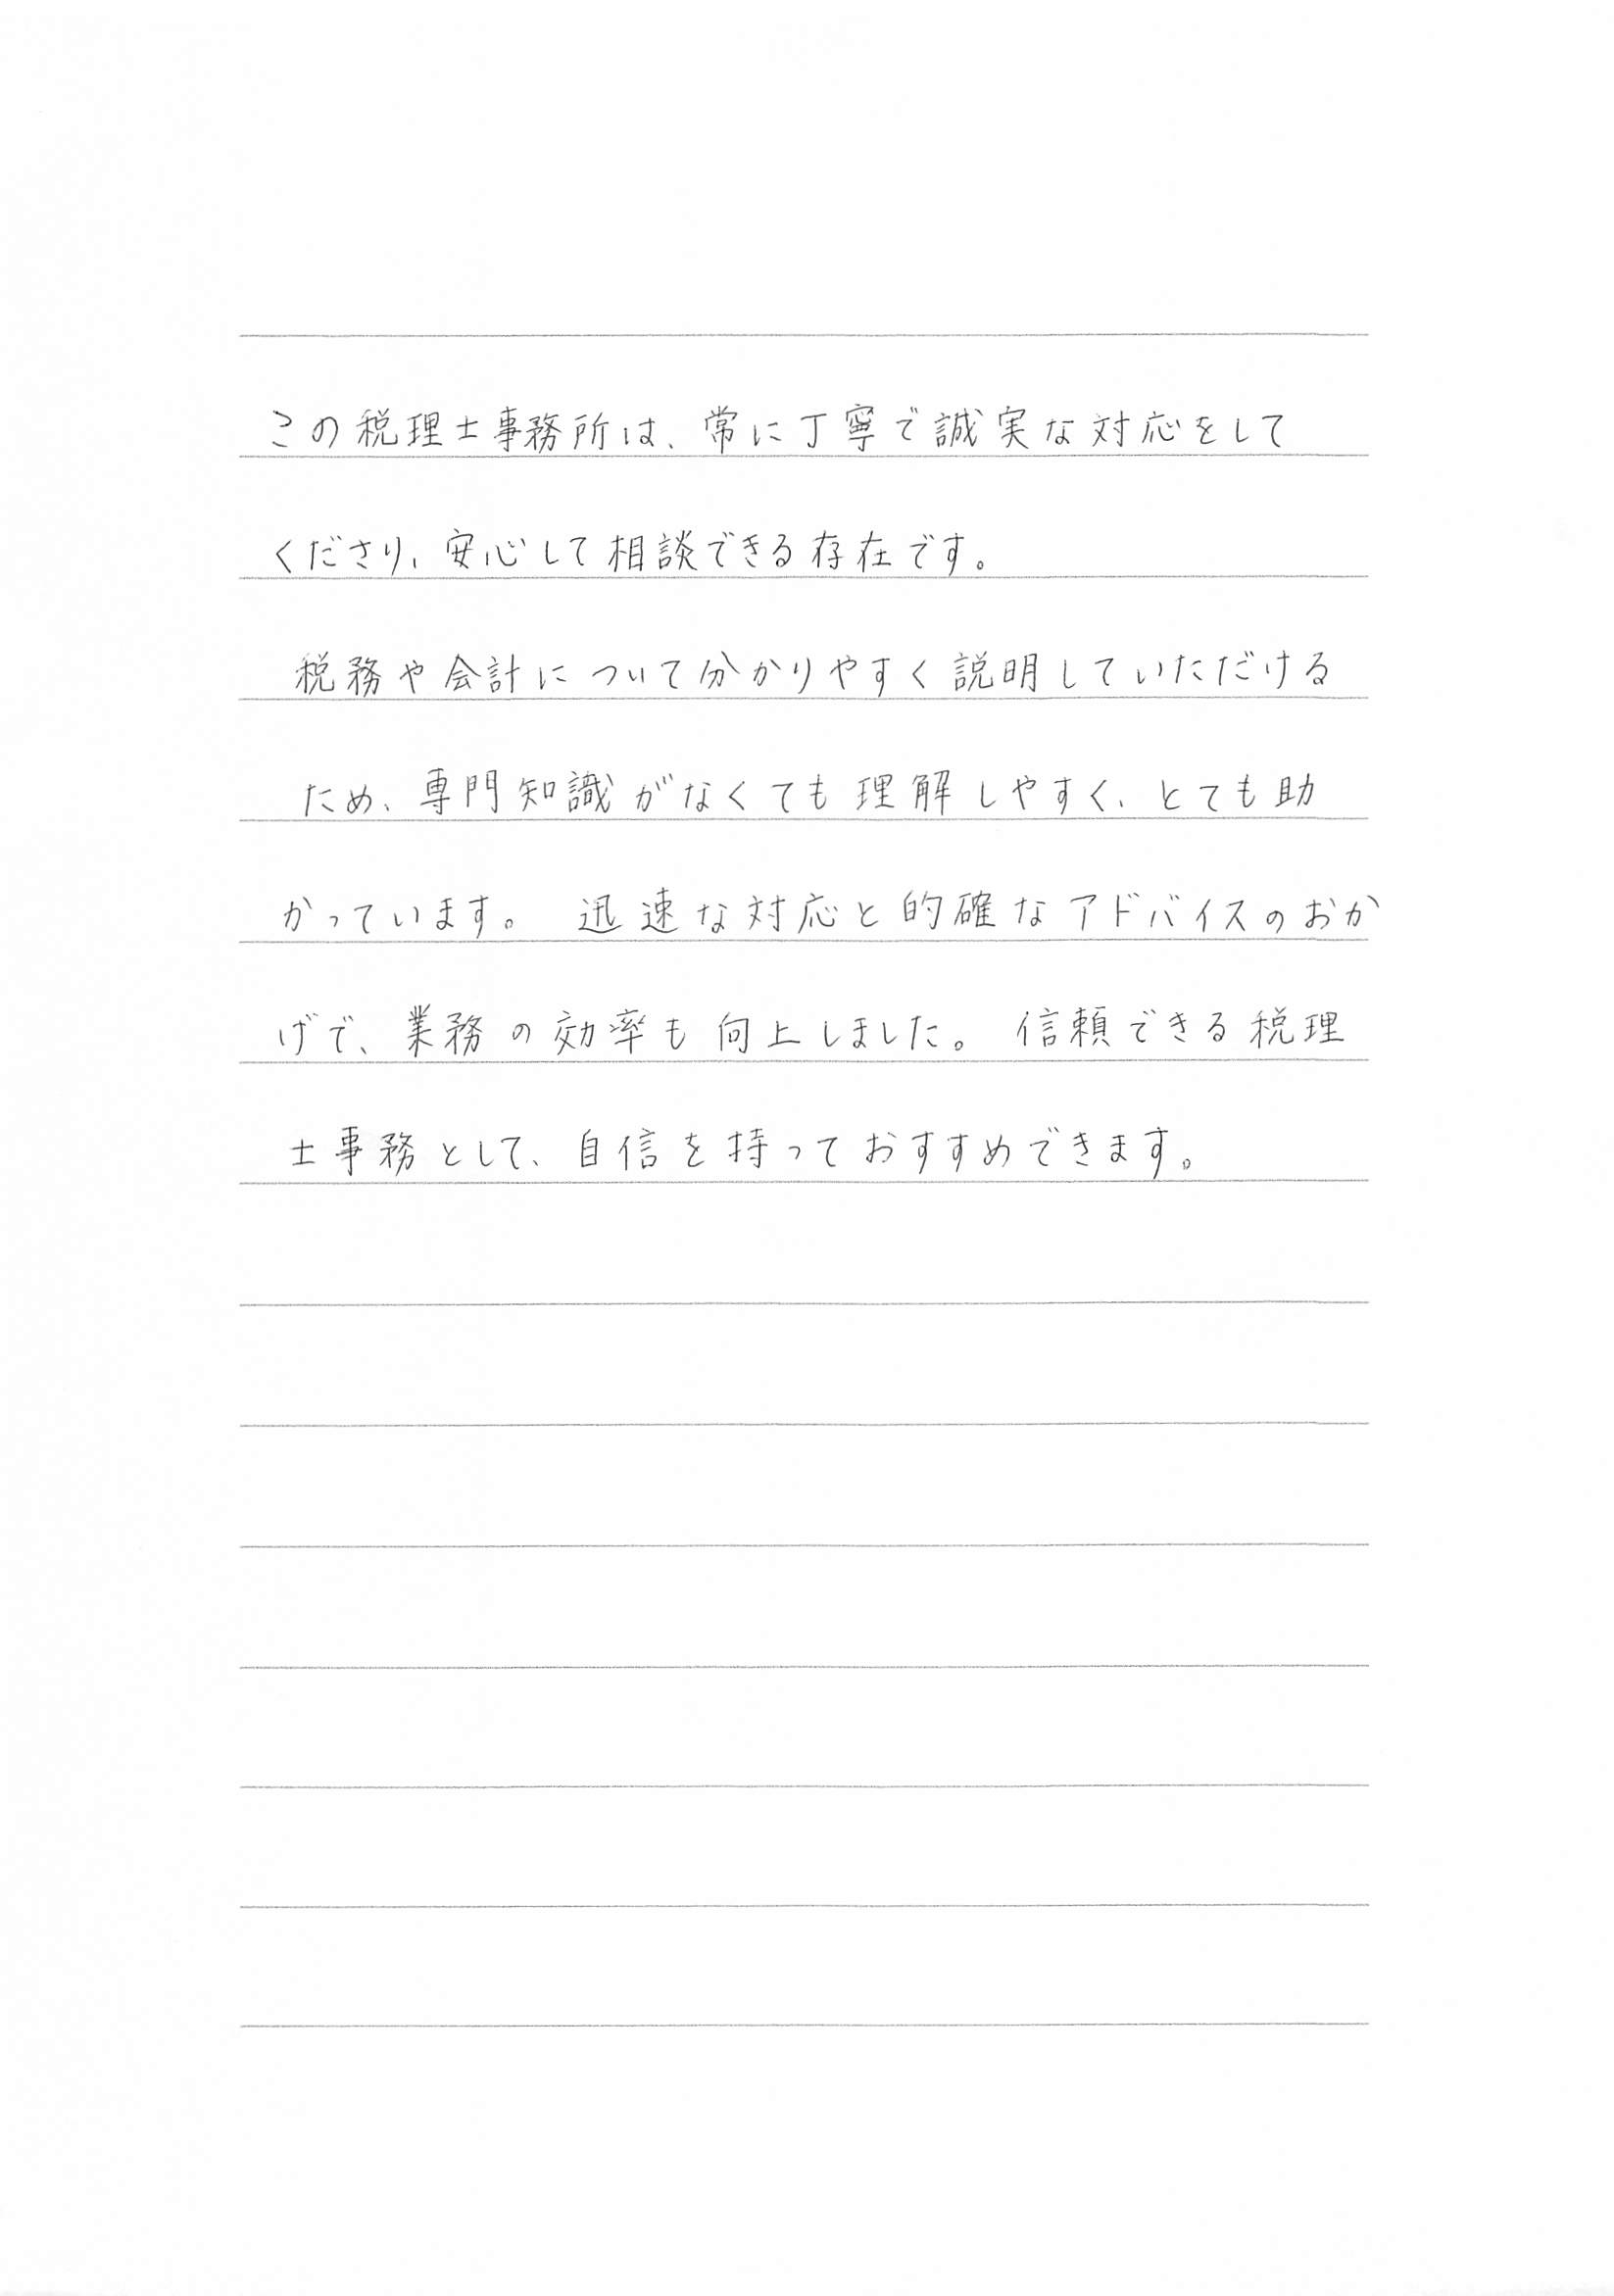 この税理士事務所は、常に丁寧で誠実な対応をして
くださり、安心して相談できる存在です。
税務や会計について分かりやすく説明していただける
ため、専門知識がなくても理解しやすく、とても助
かっています。 迅速な対応と的確なアドバイスのおか
げで、業務の効率も向上しました。 信頼できる税理
士事務として、自信を持っておすすめできます。